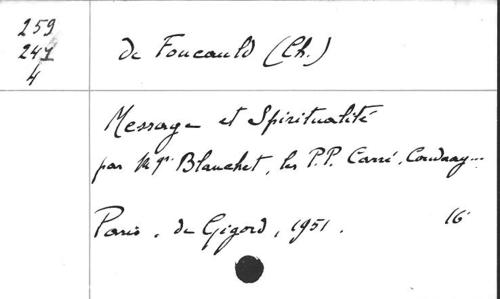 259
241
4
de Foucauld (Ch.)
Message et Spiritualité
par Mgr Blanchet, les P.P. Carré, Coudray...
Paris, de Gigord, 1951. 16